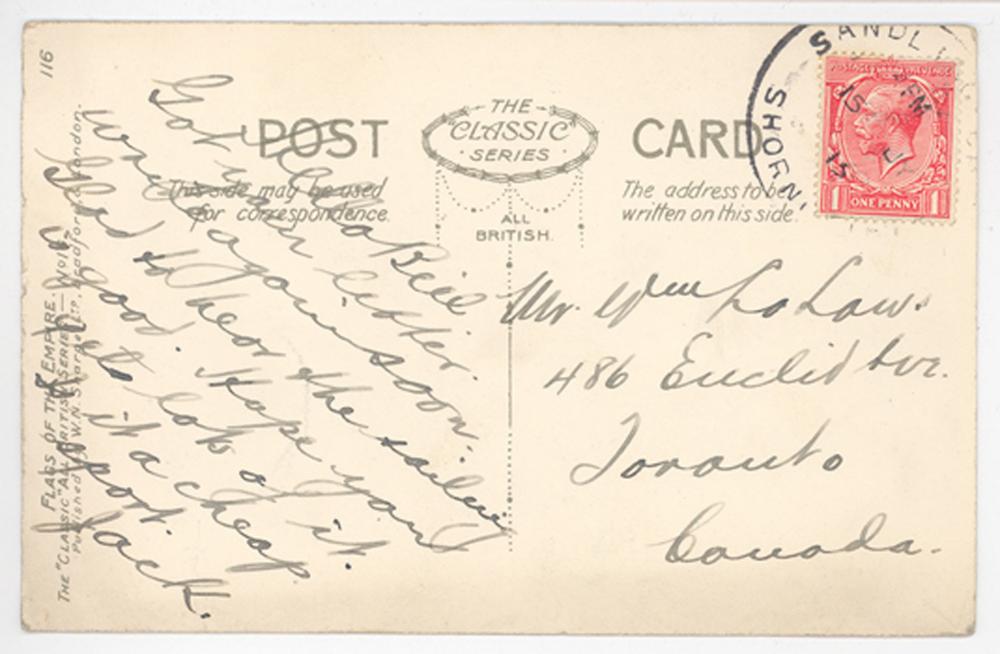 116
THE
"CLASSIC"
SERIES
POST CARD
ALL
BRITISH.
This side may be used
for correspondence.
The address to be
written on this side.
SANDLING
SHORN
PM
15
15
POSTAGE REVENUE
1 ONE PENNY 1
Hello Bill
Got your letter.
write again soon.
Glad to hear the sailing
is good. Hope you and
get lots of it.
it a cheap
sport.
Jack.
Mr. Wm LoLaw.
486 Euclid Ave.
Toronto
Canada.
FLAGS OF THE EMPIRE.
THE "CLASSIC" ALL BRITISH SERIES — No 16
Published by W.N. Sharpe LTD., Bradford & London.